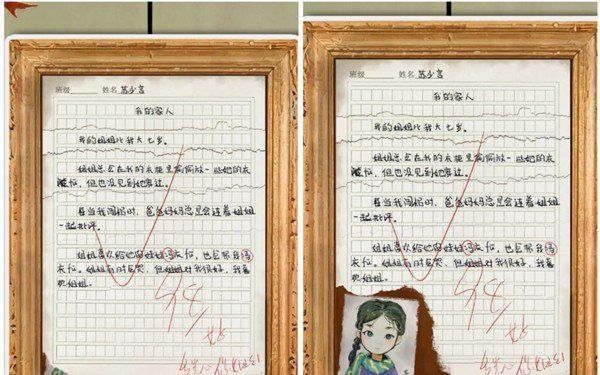 班级 姓名 苏少言
我的家人
我的姐姐比我大七岁。
姐姐总会在我的衣柜里偷偷放一些她的衣
服，但也没见到她穿过。
每当我闯祸时，爸爸妈妈总是会连着姐姐
一起批评。
姐姐喜欢给她的娃娃冯衣服，也会帮我冯
衣服。姐姐有时会哭，但姐姐对我很好，我喜
欢姐姐。
94
班级 姓名 苏少言
我的家人
我的姐姐比我大七岁。
姐姐总会在我的衣柜里偷偷放一些她的衣
服，但也没见到她穿过。
每当我闯祸时，爸爸妈妈总是会连着姐姐
一起批评。
姐姐喜欢给她的娃娃冯衣服，也会帮我冯
衣服。姐姐有时会哭，但姐姐对我很好，我喜
欢姐姐。
94